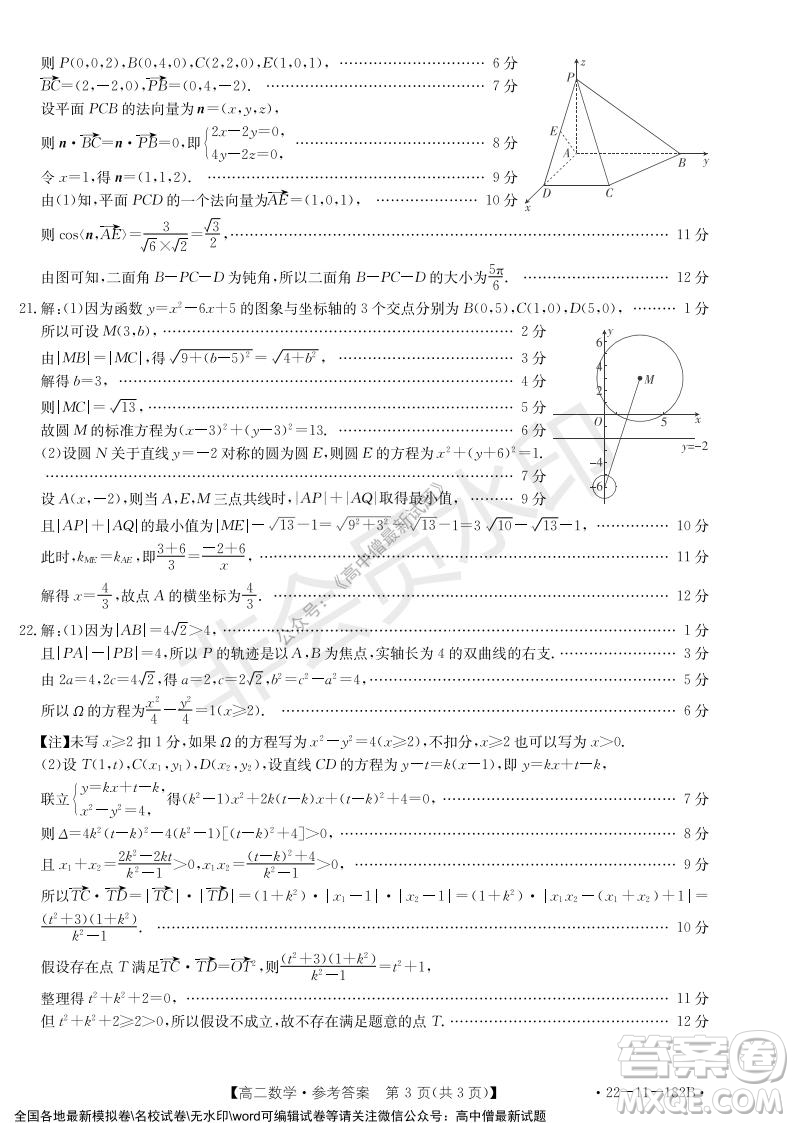 则 P(0,0,2),B(0,4,0),C(2,2,0),E(1,0,1), ………… 6 分
BC→=(2,-2,0),PB→=(0,4,-2). ………… 7 分
设平面 PCB 的法向量为 n=(x,y,z),
则 n·BC→=n·PB→=0,即{2x-2y=0, 4y-2z=0, ………… 8 分
令 x=1,得 n=(1,1,2). ………… 9 分
由(1)知,平面 PCD 的一个法向量为AE→=(1,0,1), ………… 10 分
则 cos⟨n,AE→⟩=3/(√6×√2)=√3/2, ………… 11 分
由图可知,二面角 B-PC-D 为钝角,所以二面角 B-PC-D 的大小为5π/6. ………… 12 分
z
P
E
A
B
y
D
C
x
21. 解:(1)因为函数 y=x²-6x+5 的图象与坐标轴的 3 个交点分别为 B(0,5),C(1,0),D(5,0), ……… 1 分
所以可设 M(3,b), ………… 2 分
由|MB|=|MC|,得 √(9+(b-5)²)=√(4+b²), ………… 3 分
解得 b=3, ………… 4 分
则|MC|=√13, ………… 5 分
故圆 M 的标准方程为(x-3)²+(y-3)²=13. ………… 6 分
(2)设圆 N 关于直线 y=-2 对称的圆为圆 E,则圆 E 的方程为 x²+(y+6)²=1.
………… 7 分
设 A(x,-2),则当 A,E,M 三点共线时,|AP|+|AQ|取得最小值, ……… 9 分
且|AP|+|AQ|的最小值为|ME|-√13-1=√(9²+3²)-√13-1=3√10-√13-1, ………… 10 分
此时,k_ME=k_AE,即(3+6)/3=(-2+6)/x, ………… 11 分
解得 x=4/3,故点 A 的横坐标为4/3. ………… 12 分
y
6
4
2
M
O
5
x
y=-2
-4
-6
22. 解:(1)因为|AB|=4√2>4, ………… 1 分
且|PA|-|PB|=4,所以 P 的轨迹是以 A,B 为焦点,实轴长为 4 的双曲线的右支. ………… 3 分
由 2a=4,2c=4√2,得 a=2,c=2√2,b²=c²-a²=4, ………… 5 分
所以 Ω 的方程为x²/4-y²/4=1(x≥2). ………… 6 分
【注】未写 x≥2 扣 1 分,如果 Ω 的方程写为 x²-y²=4(x≥2),不扣分,x≥2 也可以写为 x>0.
(2)设 T(1,t),C(x₁,y₁),D(x₂,y₂),设直线 CD 的方程为 y-t=k(x-1),即 y=kx+t-k,
联立{y=kx+t-k, x²-y²=4, 得(k²-1)x²+2k(t-k)x+(t-k)²+4=0, ………… 7 分
则 Δ=4k²(t-k)²-4(k²-1)[(t-k)²+4]>0, ………… 8 分
且 x₁+x₂=(2k²-2kt)/(k²-1)>0,x₁x₂=((t-k)²+4)/(k²-1)>0, ………… 9 分
所以TC→·TD→=|TC→|·|TD→|=(1+k²)·|x₁-1|·|x₂-1|=(1+k²)·|x₁x₂-(x₁+x₂)+1|=
(t²+3)(1+k²)/(k²-1). ………… 10 分
假设存在点 T 满足TC→·TD→=OT→²,则(t²+3)(1+k²)/(k²-1)=t²+1,
整理得 t²+k²+2=0, ………… 11 分
但 t²+k²+2≥2>0,所以假设不成立,故不存在满足题意的点 T. ………… 12 分
【高二数学·参考答案 第 3 页(共 3 页)】
·22-11-182B·
全国各地最新模拟卷\名校试卷\无水印\word可编辑试卷等请关注微信公众号:高中僧最新试题
非会员水印
公众号:《高中僧最新试题》